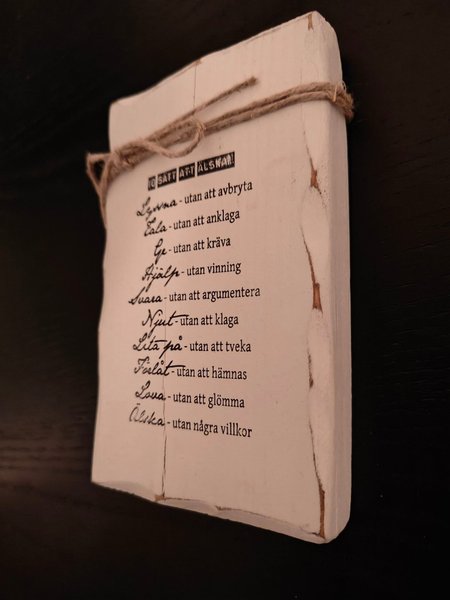 10 SÄTT ATT ÄLSKA!
Lyssna - utan att avbryta
Tala - utan att anklaga
Ge - utan att kräva
Hjälp - utan vinning
Svara - utan att argumentera
Njut - utan att klaga
Lita på - utan att tveka
Förlåt - utan att hämnas
Lova - utan att glömma
Älska - utan några villkor